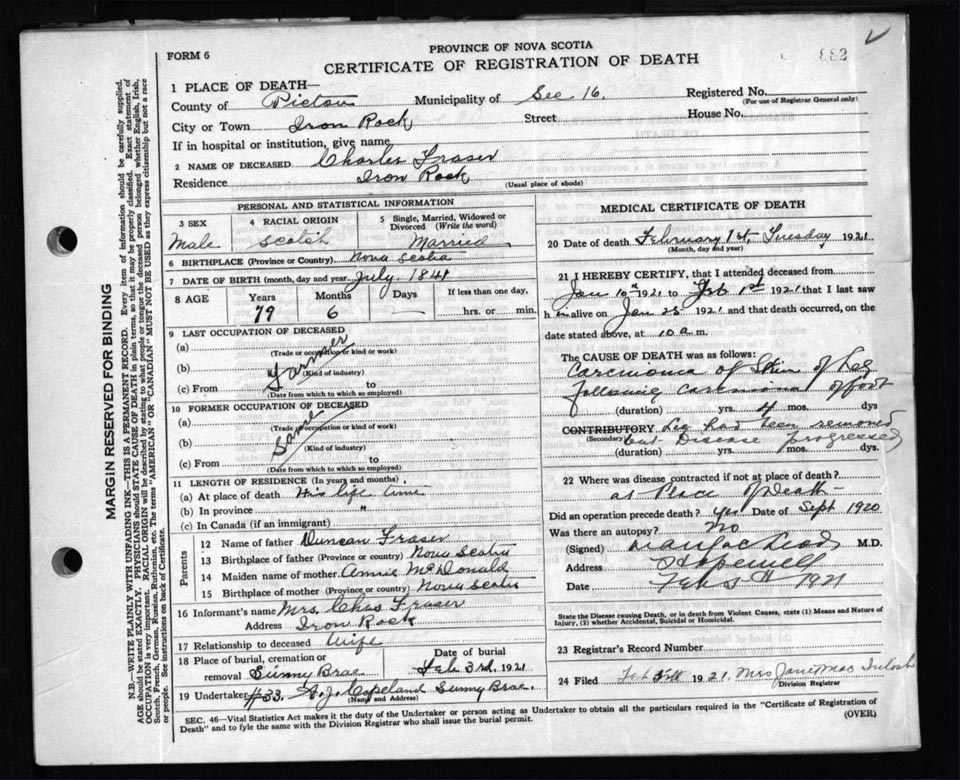 PROVINCE OF NOVA SCOTIA
FORM 6
CERTIFICATE OF REGISTRATION OF DEATH
332
1 PLACE OF DEATH—
County of Pictou Municipality of Sec 16. Registered No.
(For use of Registrar General only)
City or Town Iron Rock Street House No.
If in hospital or institution, give name
2 NAME OF DECEASED Charles Fraser
Residence Iron Rock
(Usual place of abode)
PERSONAL AND STATISTICAL INFORMATION
3 SEX 4 RACIAL ORIGIN 5 Single, Married, Widowed or Divorced (Write the word)
Male Scotch Married
6 BIRTHPLACE (Province or Country) Nova Scotia
7 DATE OF BIRTH (month, day and year) July. 1841
8 AGE Years Months Days If less than one day,
79 6 — hrs. or min.
9 LAST OCCUPATION OF DECEASED
(a)
(Trade or occupation or kind of work)
(b) Farmer
(Kind of industry)
(c) From to
(Date from which to which so employed)
10 FORMER OCCUPATION OF DECEASED
(a)
(Trade or occupation or kind of work)
(b) Same
(Kind of industry)
(c) From to
(Date from which to which so employed)
11 LENGTH OF RESIDENCE (In years and months)
(a) At place of death His life time
(b) In province "
(c) In Canada (if an immigrant)
Parents
12 Name of father Duncan Fraser
13 Birthplace of father (Province or country) Nova Scotia
14 Maiden name of mother Annie McDonald
15 Birthplace of mother (Province or country) Nova Scotia
16 Informant's name Mrs. Chas Fraser
Address Iron Rock
17 Relationship to deceased Wife
18 Place of burial, cremation or removal Sunny Brae Date of burial Feb 3rd. 1921
19 Undertaker #33. G. J. Copeland Sunny Brae.
(Name and Address)
MEDICAL CERTIFICATE OF DEATH
20 Date of death February 1st, Tuesday 1921
(Month, day and year)
21 I HEREBY CERTIFY, that I attended deceased from
Jan 10th 1921 to Feb 1st 1921 that I last saw
h im alive on Jan 25 1921 and that death occurred, on the
date stated above, at 10 a m.
The CAUSE OF DEATH was as follows:
Carcinoma of Skin of Leg
following carcinoma of foot
(duration) yrs. 4 mos. dys
CONTRIBUTORY Leg had been removed
(Secondary) but Disease progressed
(duration) yrs. mos. dys.
22 Where was disease contracted if not at place of death?
at Place of Death
Did an operation precede death? yes Date of Sept 1920
Was there an autopsy? No
(Signed) M.D.
Address Hopewell
Date Feb 5th 1921
State the Disease causing Death, or in death from Violent Causes, state (1) Means and Nature of
Injury, (2) whether Accidental, Suicidal or Homicidal.
23 Registrar's Record Number
24 Filed Feb 1921. Mrs Jane MacIntosh
Division Registrar
SEC. 46—Vital Statistics Act makes it the duty of the Undertaker or person acting as Undertaker to obtain all the particulars required in the "Certificate of Registration of
Death" and to fyle the same with the Division Registrar who shall issue the burial permit. (OVER)
MARGIN RESERVED FOR BINDING
N.B.—WRITE PLAINLY WITH UNFADING INK—THIS IS A PERMANENT RECORD. Every item of information should be carefully supplied.
AGE should be stated EXACTLY. PHYSICIANS should STATE CAUSE OF DEATH in plain terms, so that it may be properly classified. Exact statement of
OCCUPATION is very important. RACIAL ORIGIN will be described by stating to what people or tongue the deceased person belonged whether English, Irish,
Scotch, French, German, Russian, Ruthenian, etc. The terms "AMERICAN" or "CANADIAN" MUST NOT BE USED as they express citizenship but not a race
or people. See instructions on back of Certificate.